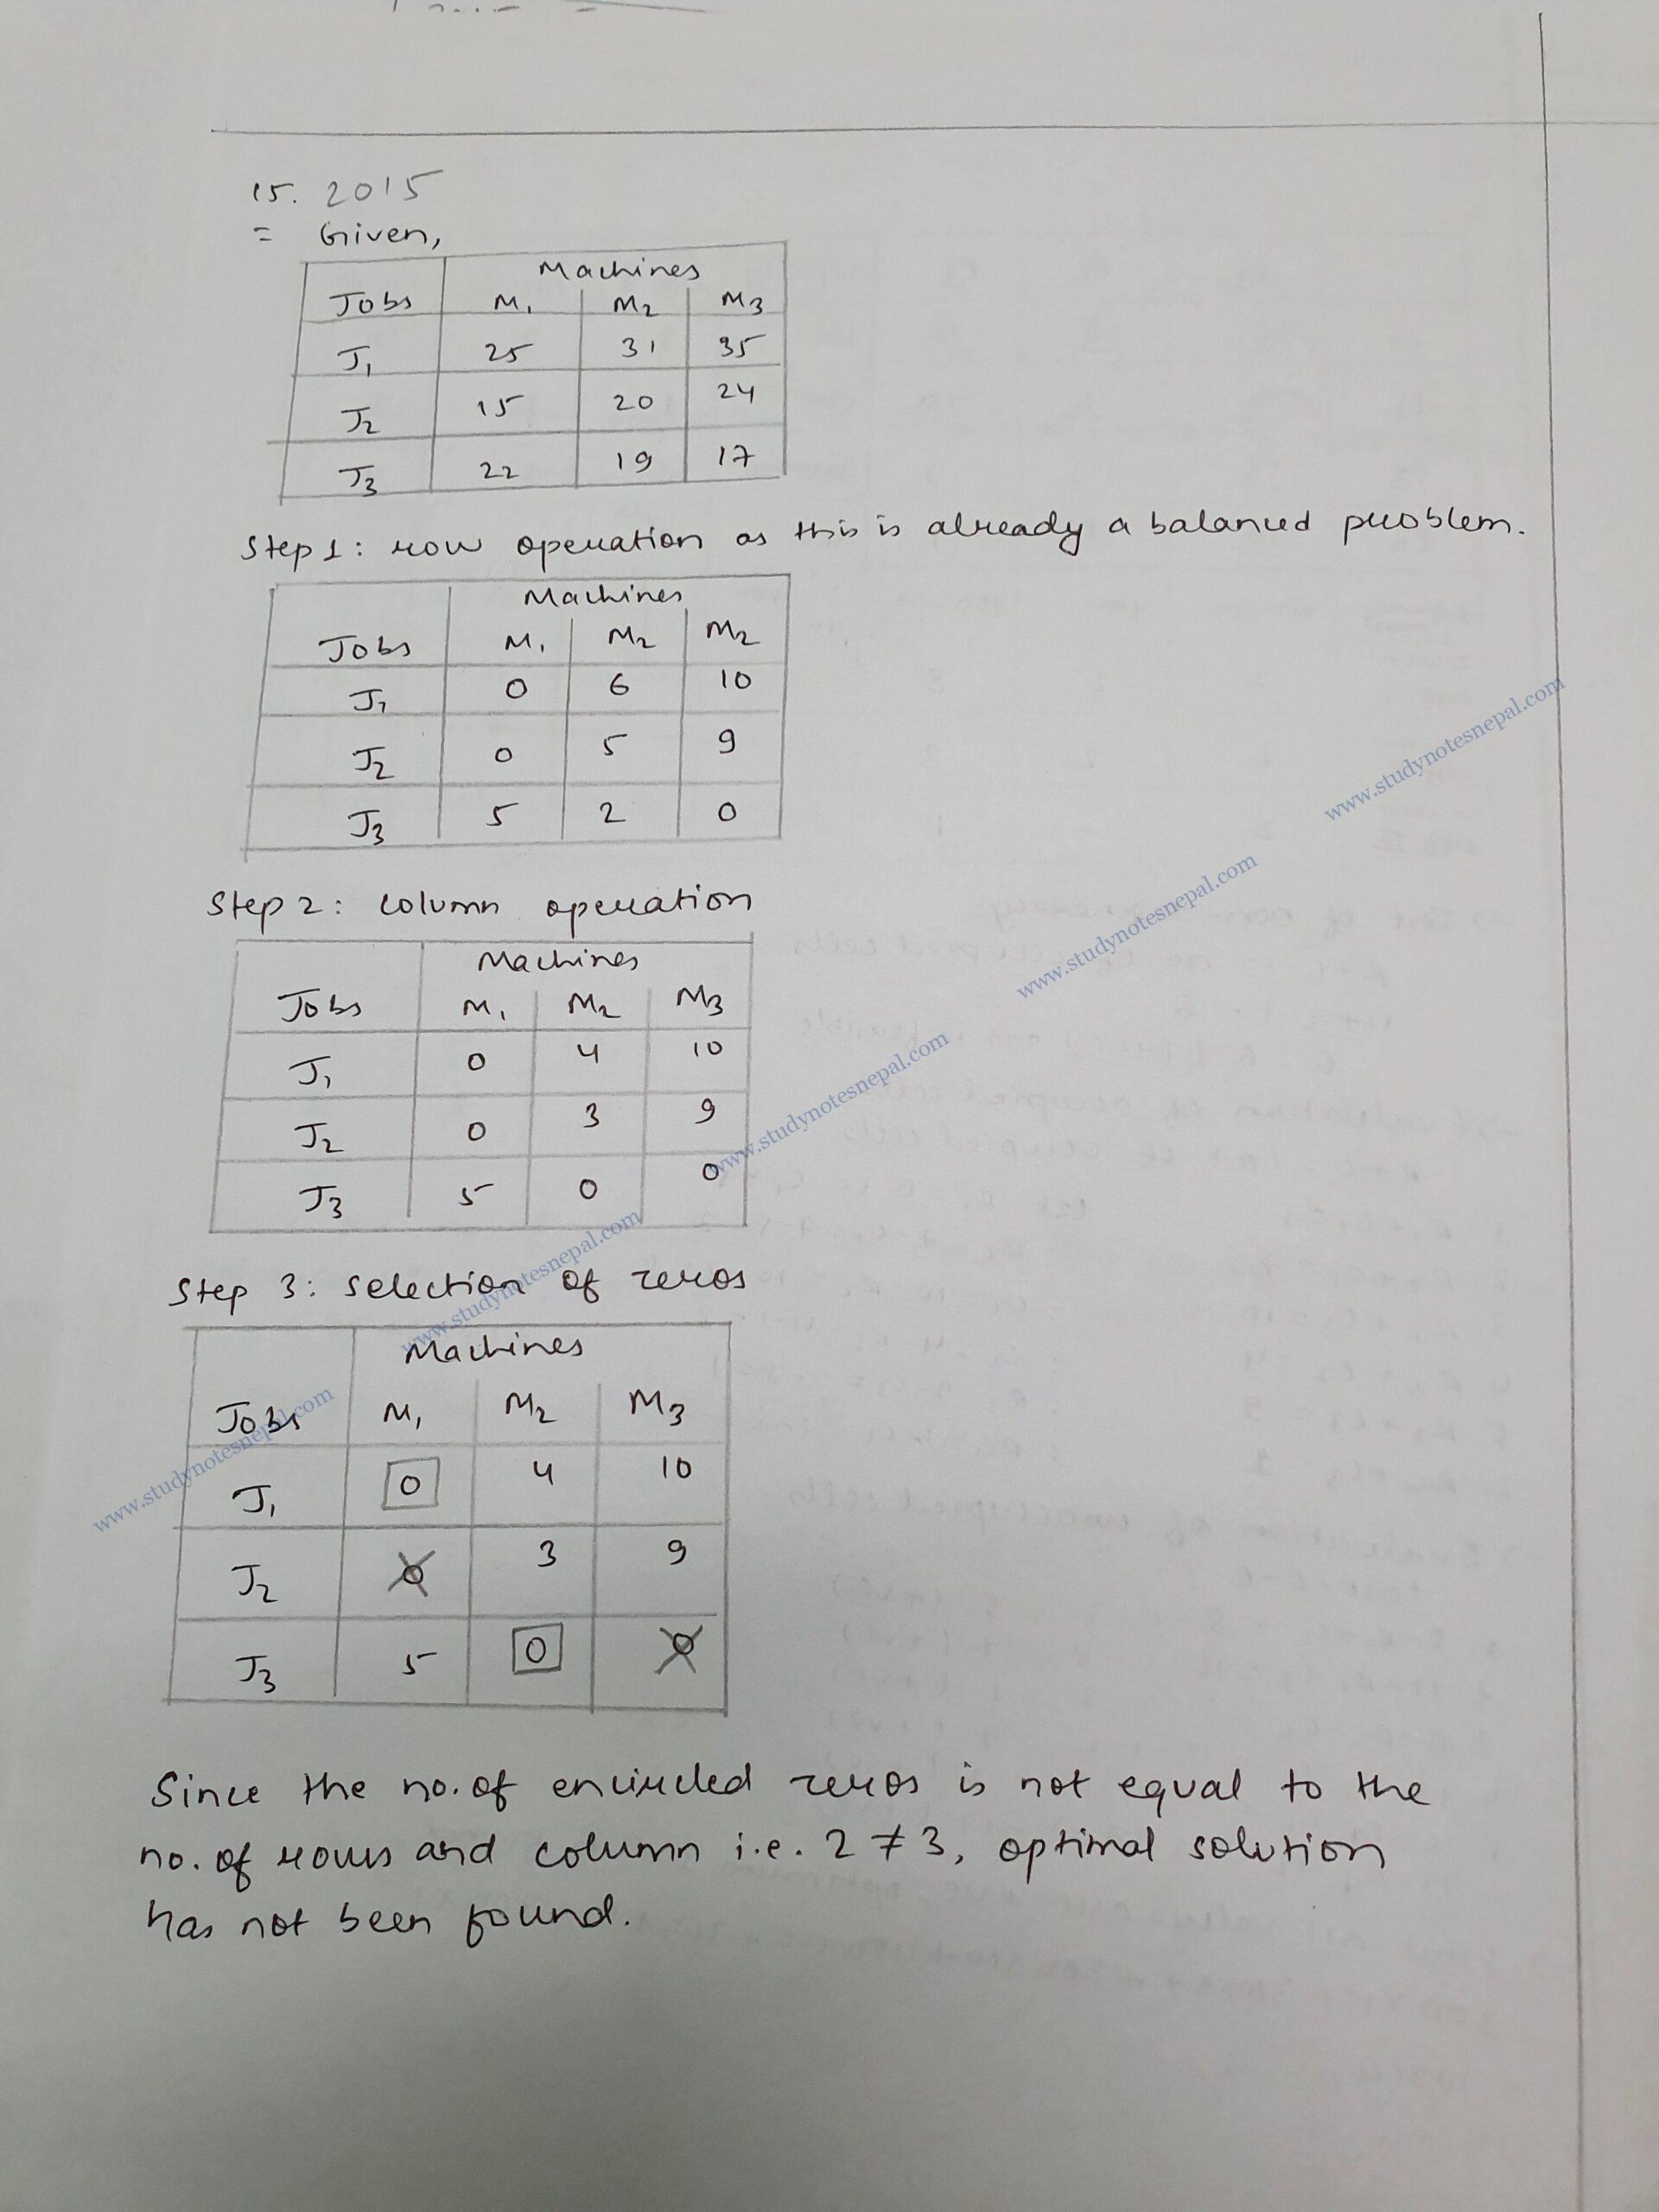 15. 2015
= Given,
Machines
Jobs M1 M2 M3
J1 25 31 35
J2 15 20 24
J3 22 19 17
Step 1: row operation as this is already a balanced problem.
Machines
Jobs M1 M2 M2
J1 0 6 10
J2 0 5 9
J3 5 2 0
Step 2: column operation
Machines
Jobs M1 M2 M3
J1 0 4 10
J2 0 3 9
J3 5 0 0
Step 3: selection of zeros
Machines
Jobs M1 M2 M3
J1 0 4 10
J2 0 3 9
J3 5 0 0
Since the no. of encircled zeros is not equal to the
no. of rows and column i.e. 2 ≠ 3, optimal solution
has not been found.
www.studynotesnepal.com
www.studynotesnepal.com
www.studynotesnepal.com
www.studynotesnepal.com
www.studynotesnepal.com